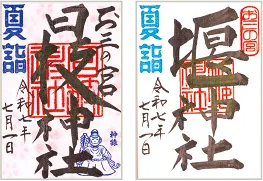 夏詣
お三の宮
日枝神社
令和七年
七月一日
神猿
夏詣
お三の宮
堰神社
令和七年
七月一日